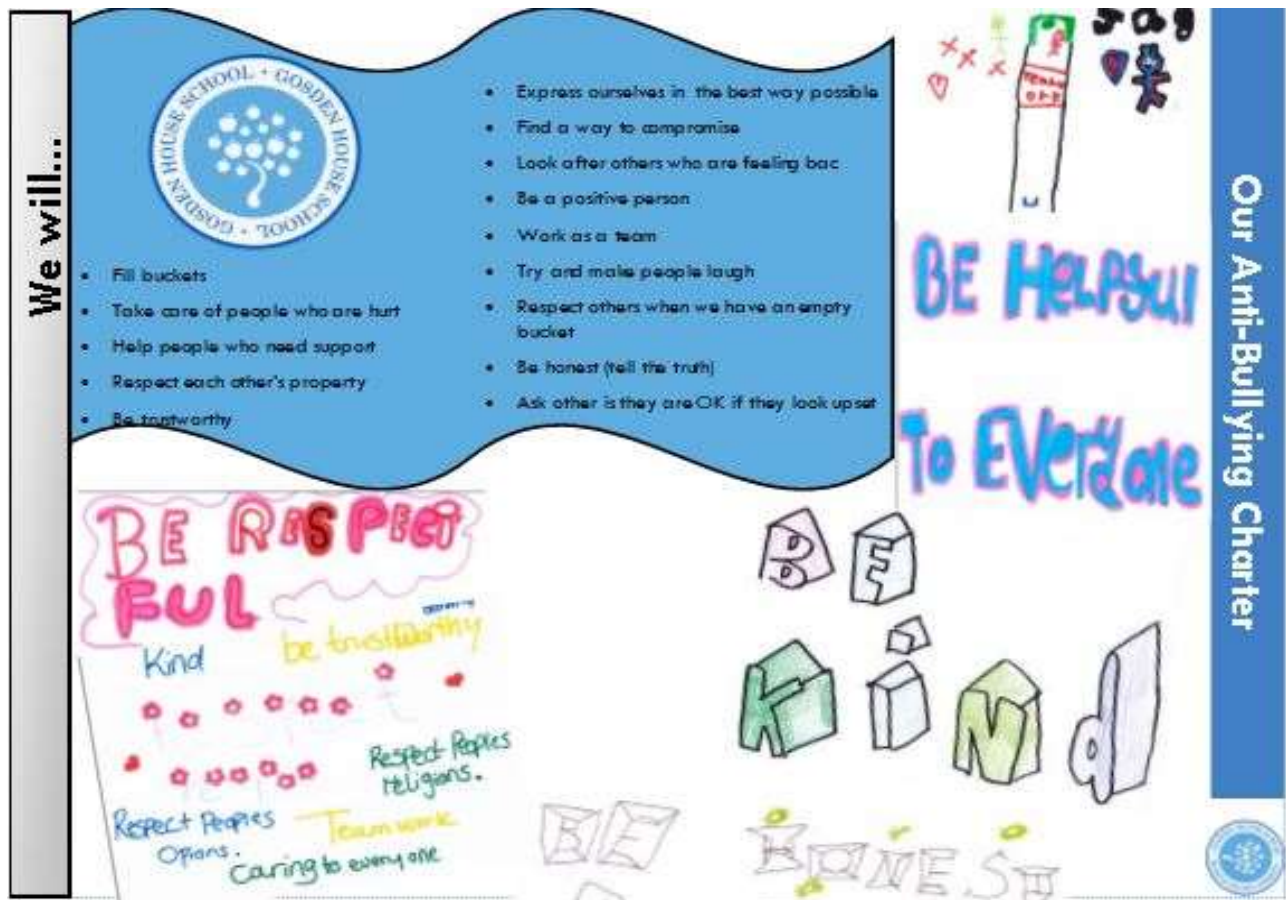 We will...
GOSDEN HOUSE SCHOOL · GOSDEN HOUSE SCHOOL ·
• Fill buckets
• Take care of people who are hurt
• Help people who need support
• Respect each other's property
• Be trustworthy
• Express ourselves in the best way possible
• Find a way to compromise
• Look after others who are feeling bac
• Be a positive person
• Work as a team
• Try and make people laugh
• Respect others when we have an empty
bucket
• Be honest (tell the truth)
• Ask other is they are OK if they look upset
BE HELPfUl
To EVerydone
Our Anti-Bullying Charter
BE RESPECT
FUL
Kind
be trustworthy
Respect Peoples
religions.
Respect Peoples
Opions.
Teamwork
Caring to everyone
BE
KiNd
BE HONEST